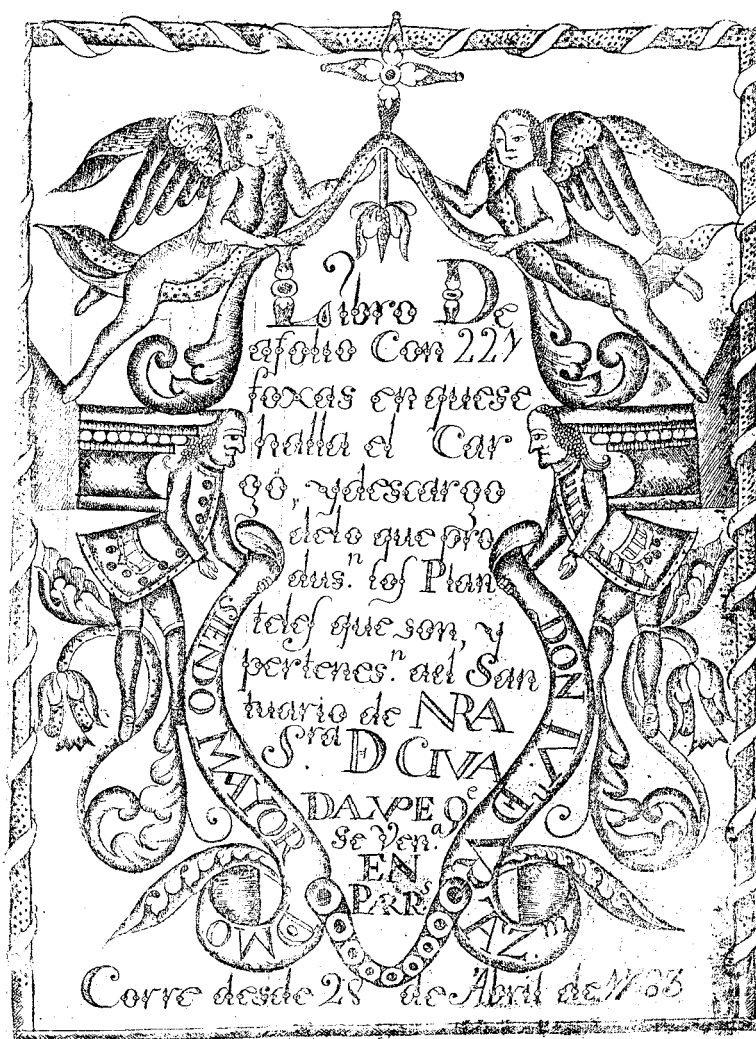 Libro De
afolio Con 221
foxas en quese
halla el Car
go, ydescargo
delo que pro
dus.n los Plan
teles que son, y
pertenes.n ael San
tuario de NRA
Sra D CIVA
DALVPE Qe
Se Ven.a
EN
PARRs
SIENDO MAYOR DMO
DON
Corre desde 28 de Abril de